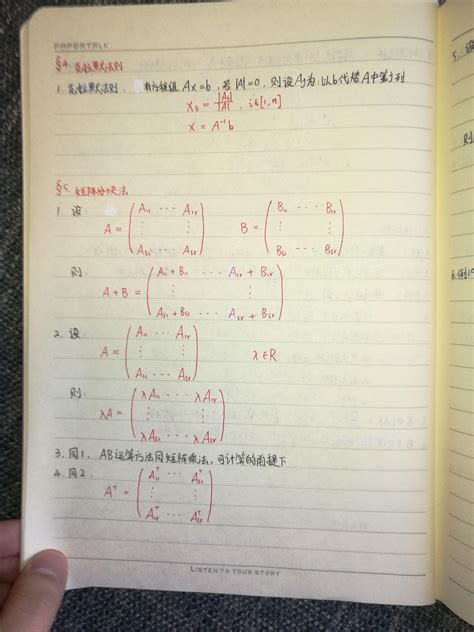 PAPERTALK
§4. 克拉默法则
1. 克拉默法则 有方程组 Ax=b, 若 |A|=0, 则设 Aj为:以b代替A中第j列
xj = |Aj|/|A|, i∈[1,n]
x = A⁻¹b
§5. 矩阵分块法
1. 设 A = ( A₁₁ ··· A₁ᵣ ⋮ ⋮ Aₛ₁ ··· Aₛᵣ ) B = ( B₁₁ ··· B₁ᵣ ⋮ ⋮ Bₛ₁ ··· Bₛᵣ )
则 A+B = ( A₁₁+B₁₁ ··· A₁ᵣ+B₁ᵣ ⋮ ⋮ Aₛ₁+Bₛ₁ ··· Aₛᵣ+Bₛᵣ )
2. 设 A = ( A₁₁ ··· A₁ᵣ ⋮ ⋮ Aₛ₁ ··· Aₛᵣ ) λ∈R
则 λA = ( λA₁₁ ··· λA₁ᵣ ⋮ ⋮ λAₛ₁ ··· λAₛᵣ )
3. 同1, AB运算方法同矩阵乘法, 可计算的前提下
4. 同2,
Aᵀ = ( A₁₁ᵀ ··· Aₛ₁ᵀ ⋮ ⋮ A₁ᵣᵀ ··· Aₛᵣᵀ )
LISTEN TO YOUR STORY
5. 设
则
6. 例10